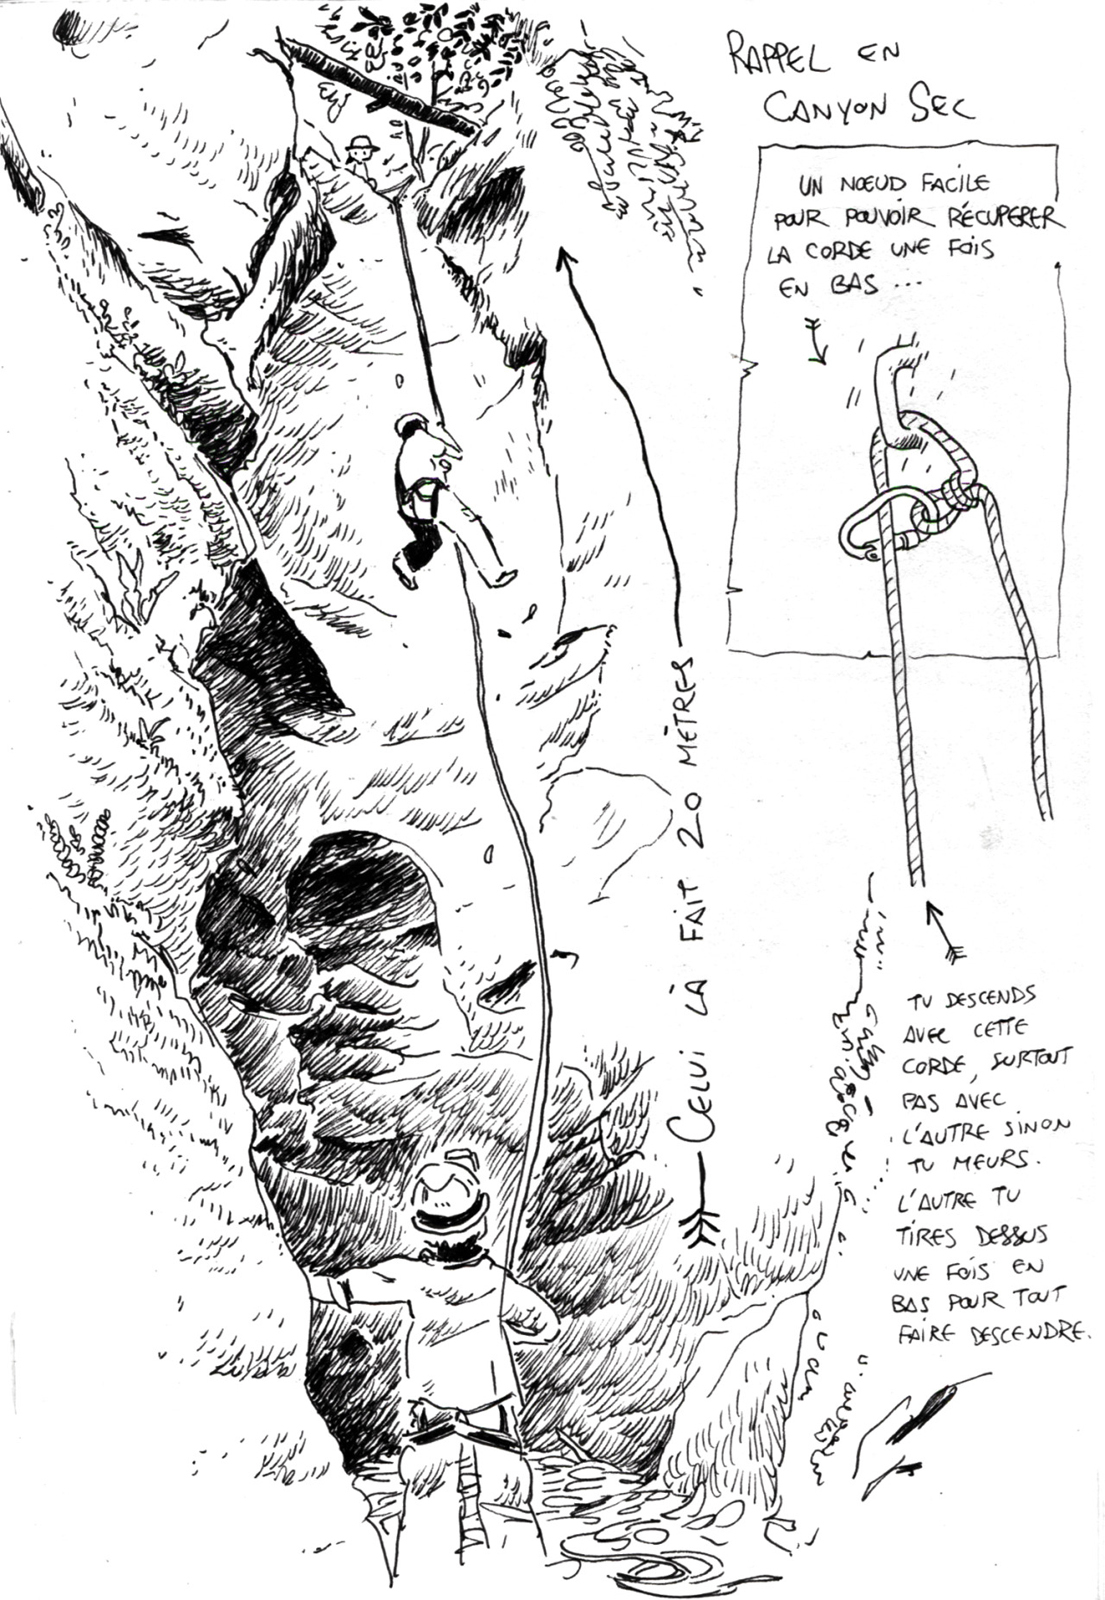 RAPPEL EN
CANYON SEC
UN NŒUD FACILE
POUR POUVOIR RÉCUPERER
LA CORDE UNE FOIS
EN BAS ...
CELUI LÀ FAIT 20 MÈTRES
TU DESCENDS
AVEC CETTE
CORDE, SURTOUT
PAS AVEC
L'AUTRE SINON
TU MEURS.
L'AUTRE TU
TIRES DESSUS
UNE FOIS EN
BAS POUR TOUT
FAIRE DESCENDRE.